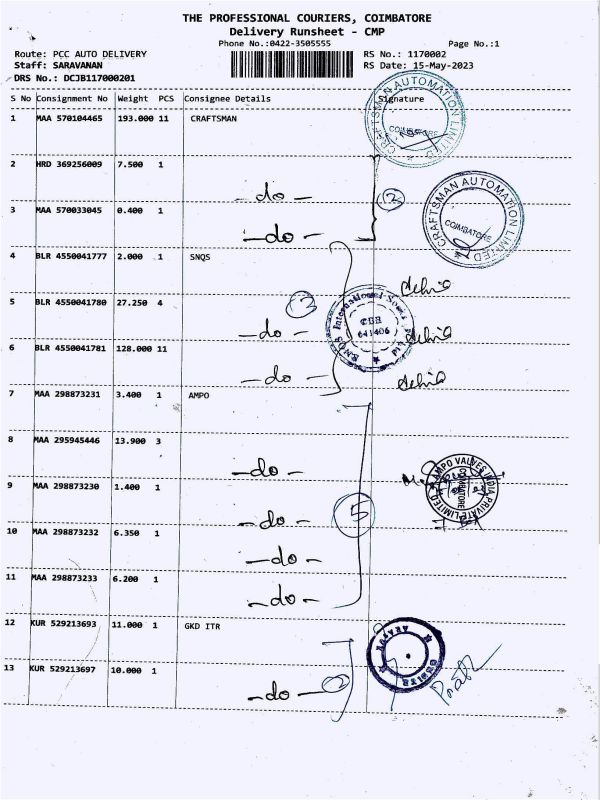 THE PROFESSIONAL COURIERS, COIMBATORE
Delivery Runsheet - CMP
Phone No.:0422-3505555 Page No.:1
Route: PCC AUTO DELIVERY RS No.: 1170002
Staff: SARAVANAN RS Date: 15-May-2023
DRS No.: DCJB117000201
S No Consignment No Weight PCS Consignee Details Signature
1 MAA 570104465 193.000 11 CRAFTSMAN
CRAFTSMAN AUTOMATION LIMITED
COIMBATORE
2 HRD 369256009 7.500 1
-do-
2
3 MAA 570033045 0.400 1
-do-
CRAFTSMAN AUTOMATION LIMITED
COIMBATORE
4 BLR 4550041777 2.000 1 SNQS
5 BLR 4550041780 27.250 4
-do-
3
SNQS International Socks
CBE
641406
6 BLR 4550041781 128.000 11
-do-
7 MAA 298873231 3.400 1 AMPO
8 MAA 295945446 13.900 3
-do-
AMPO VALVES INDIA PRIVATE LIMITED
COIMBATORE
9 MAA 298873230 1.400 1
-do-
5
10 MAA 298873232 6.350 1
-do-
11 MAA 298873233 6.200 1
-do-
12 KUR 529213693 11.000 1 GKD ITR
13 KUR 529213697 10.000 1
-do-
2